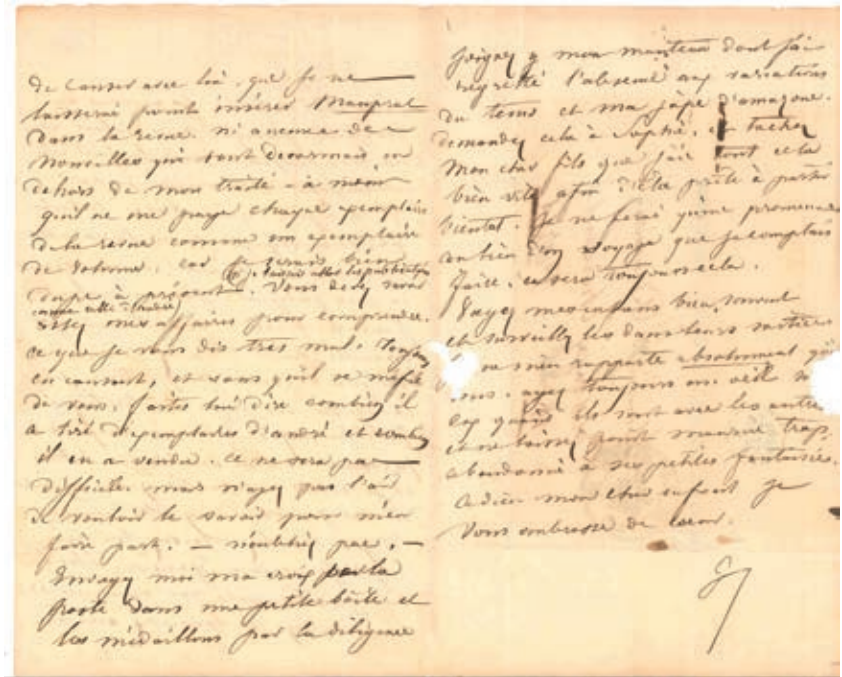 de causer avec lui, que je ne
laisserai point insérer Mauprat
dans la revue ni aucune de
nouvelles qui sont désormais en
dehors de mon traité - à moins
qu'il ne me paye chaque exemplaire
de la revue comme un exemplaire
de volume, car je serais bien
dupe à présent. Vous devez savoir
comme celle d'andré
assez mes affaires pour comprendre
ce que je vous dis très mal.
en causant, et sans qu'il se méfie
de vous, faites lui dire combien il
a tiré d'exemplaires d'andré et combien
il en a vendu. ce ne sera pas
difficile. mais n'ayez pas l'air
de vouloir le savoir pour m'en
faire part. — n'oubliez pas. —
Envoyez moi ma croix par la
poste dans une petite boite et
les médaillons par la diligence
joignez y mon manteau dont j'ai
regretté l'absence aux variations
du tems et ma jupe d'amazone.
demandez cela à Sophie, et tachez
Mon cher fils que j'aie tout cela
bien vite afin d'être prête à partir
bientot. Je ne ferai qu'une promenade
au lieu d'un voyage que je comptais
faire, ce sera toujours cela.
Voyez mes enfans bien souvent
et surveillez les dans leurs sorties
je m'en rapporte absolument
vous. ayez toujours un œil
eux quand ils sont avec les autres
et ne laissez point maurice trop
abandonné à ses petites fantaisies.
adieu mon cher enfant je
vous embrasse de cœur.
G